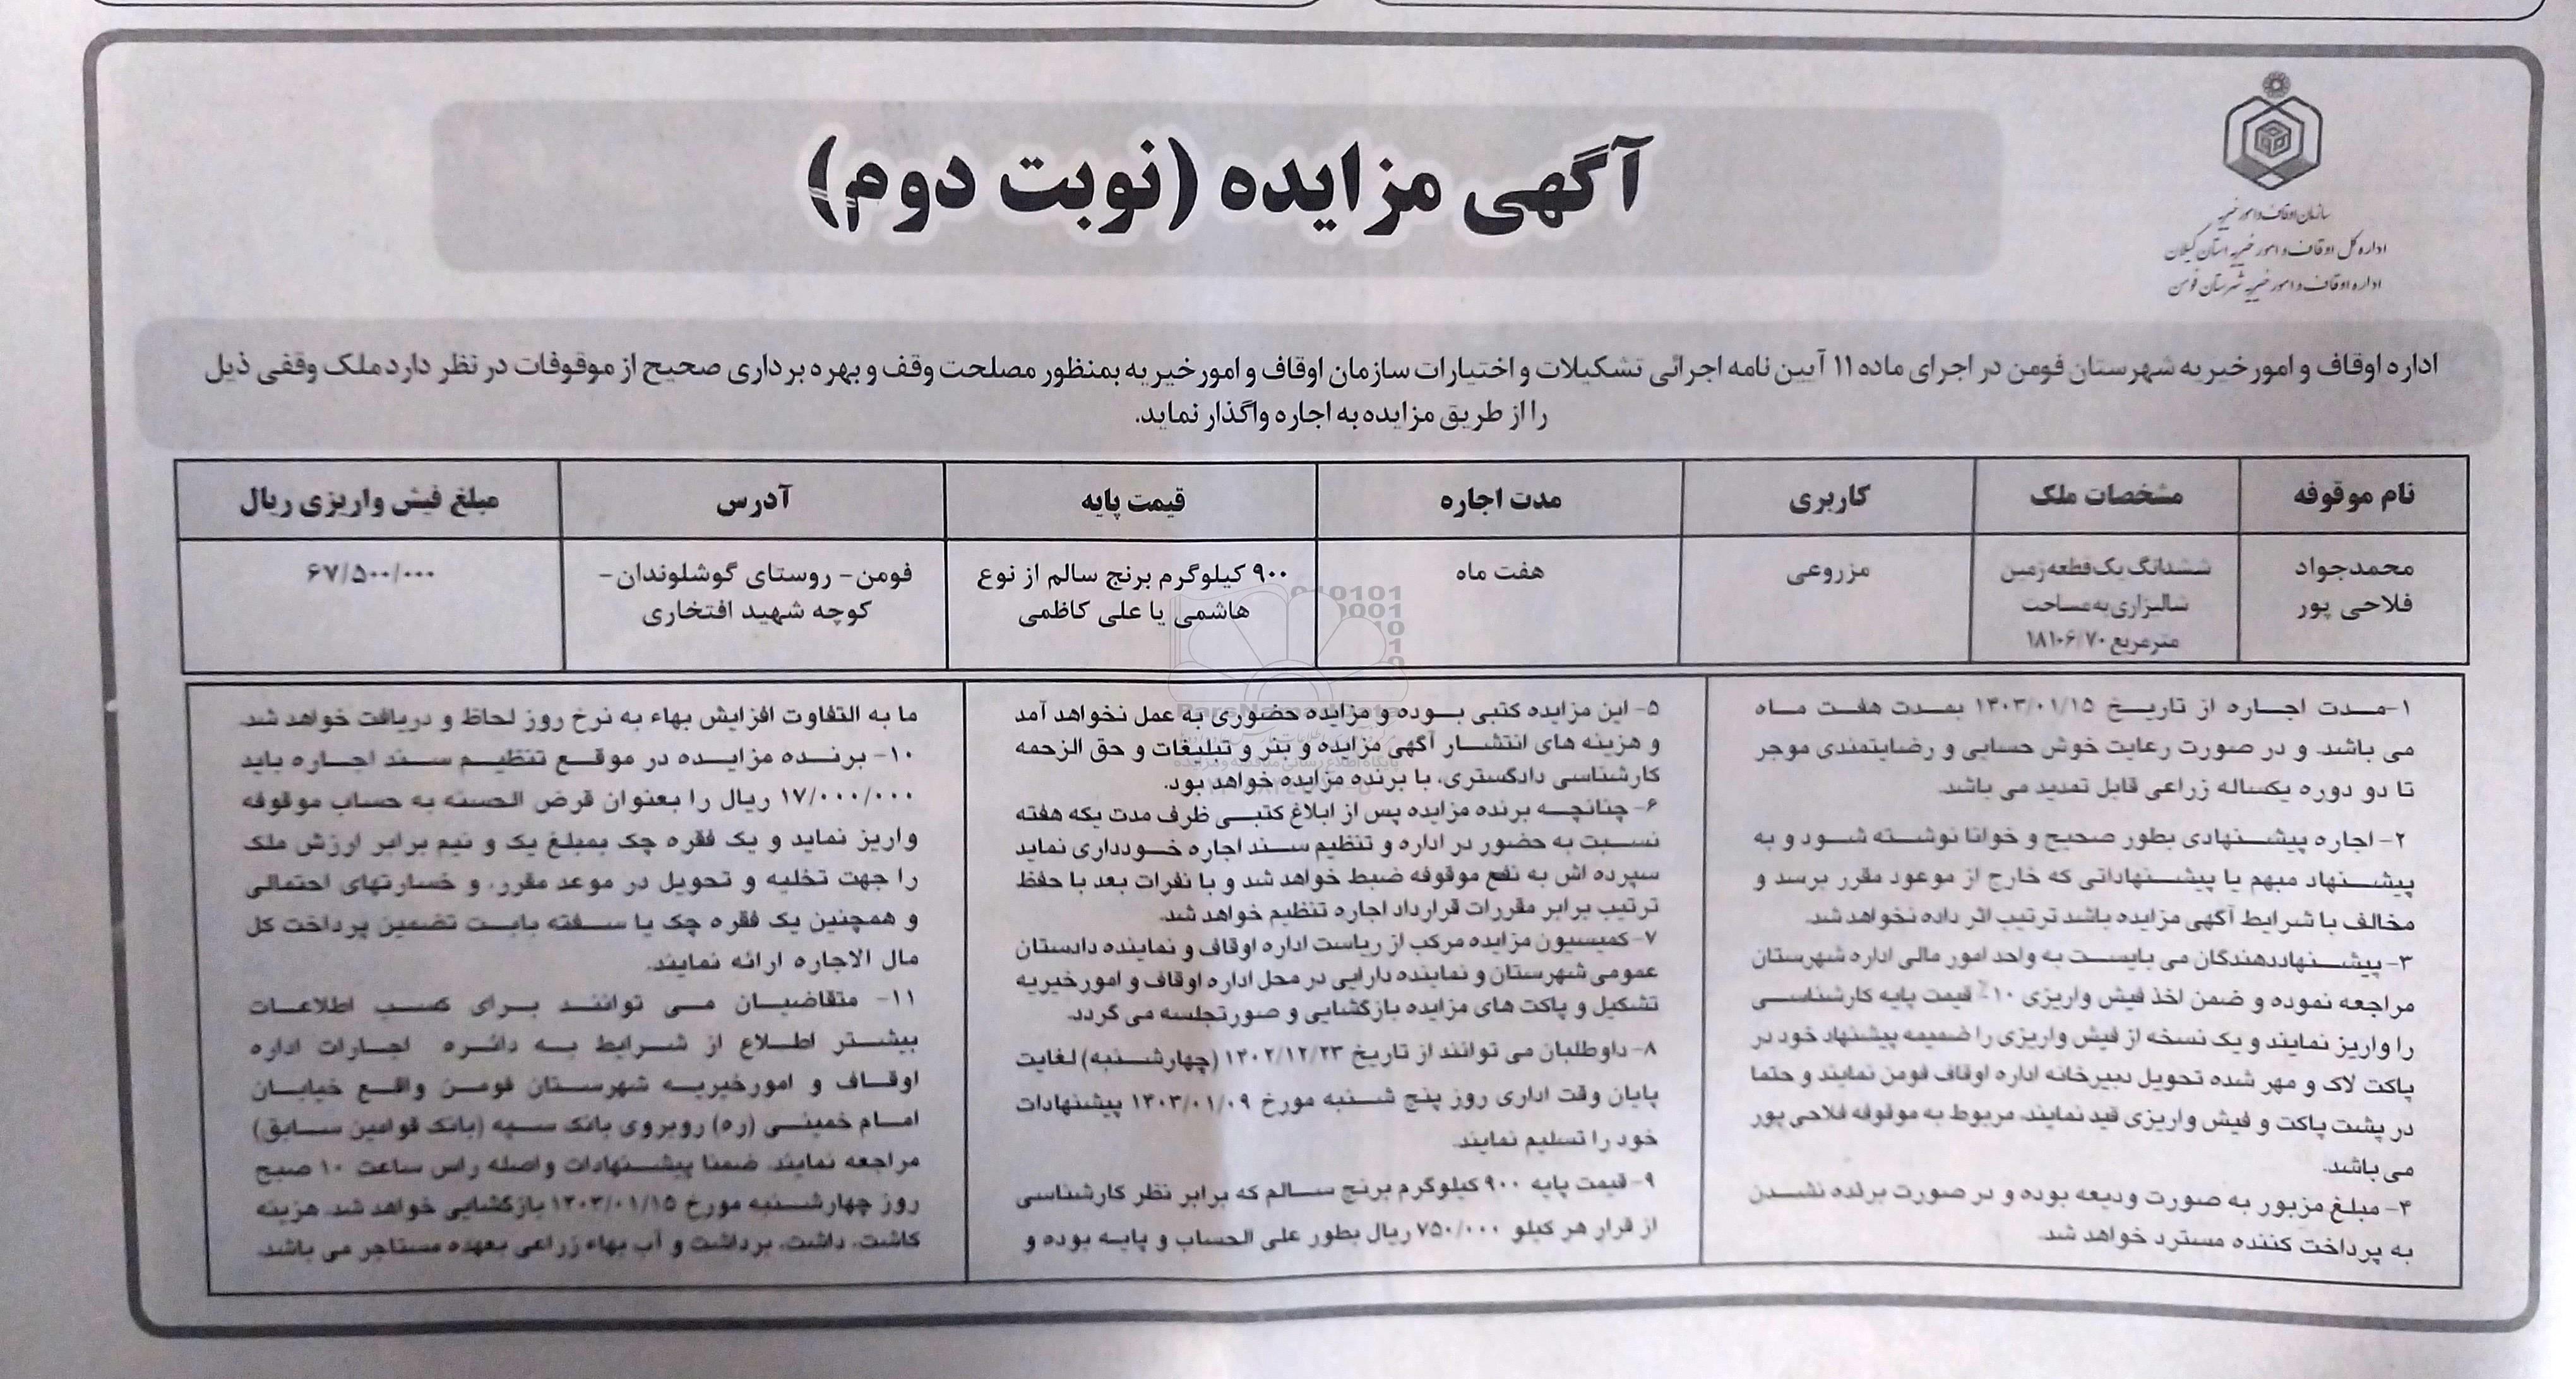 سازمان اوقاف و امور خیریه
اداره کل اوقاف و امور خیریه استان گیلان
اداره اوقاف و امور خیریه شهرستان فومن
آگهی مزایده (نوبت دوم)
اداره اوقاف و امور خیریه شهرستان فومن در اجرای ماده ۱۱ آیین نامه اجرائی تشکیلات و اختیارات سازمان اوقاف و امور خیریه بمنظور مصلحت وقف و بهره برداری صحیح از موقوفات در نظر دارد ملک وقفی ذیل
را از طریق مزایده به اجاره واگذار نماید.
نام موقوفه مشخصات ملک کاربری مدت اجاره قیمت پایه آدرس مبلغ فیش واریزی ریال
محمدجواد ششدانگ یک قطعه زمین مزروعی هفت ماه ۹۰۰ کیلوگرم برنج سالم از نوع فومن- روستای گوشلوندان- ۶۷/۵۰۰/۰۰۰
فلاحی پور شالیزاری به مساحت هاشمی یا علی کاظمی کوچه شهید افتخاری
مترمربع ۱۸۱۰۶/۷۰
۱-مدت اجاره از تاریخ ۱۴۰۳/۰۱/۱۵ بمدت هفت ماه
می باشد. و در صورت رعایت خوش حسابی و رضایتمندی موجر
تا دو دوره یکساله زراعی قابل تمدید می باشد.
۲- اجاره پیشنهادی بطور صحیح و خوانا نوشته شود و به
پیشنهاد مبهم یا پیشنهاداتی که خارج از موعود مقرر برسد و
مخالف با شرایط آگهی مزایده باشد ترتیب اثر داده نخواهد شد.
۳- پیشنهاددهندگان می بایست به واحد امور مالی اداره شهرستان
مراجعه نموده و ضمن اخذ فیش واریزی ۱۰٪ قیمت پایه کارشناسی
را واریز نمایند و یک نسخه از فیش واریزی را ضمیمه پیشنهاد خود در
پاکت لاک و مهر شده تحویل دبیرخانه اداره اوقاف فومن نمایند و حتما
در پشت پاکت و فیش واریزی قید نمایند. مربوط به موقوفه فلاحی پور
می باشد.
۴- مبلغ مزبور به صورت ودیعه بوده و در صورت برنده نشدن
به پرداخت کننده مسترد خواهد شد.
۵- این مزایده کتبی بوده و مزایده حضوری به عمل نخواهد آمد
و هزینه های انتشار آگهی مزایده و بنر و تبلیغات و حق الزحمه
کارشناسی دادگستری، با برنده مزایده خواهد بود.
۶- چنانچه برنده مزایده پس از ابلاغ کتبی ظرف مدت یکه هفته
نسبت به حضور در اداره و تنظیم سند اجاره خودداری نماید
سپرده اش به نفع موقوفه ضبط خواهد شد و با نفرات بعد با حفظ
ترتیب برابر مقررات قرارداد اجاره تنظیم خواهد شد.
۷- کمیسیون مزایده مرکب از ریاست اداره اوقاف و نماینده دادستان
عمومی شهرستان و نماینده دارایی در محل اداره اوقاف و امور خیریه
تشکیل و پاکت های مزایده بازگشایی و صورتجلسه می گردد.
۸- داوطلبان می توانند از تاریخ ۱۴۰۲/۱۲/۲۳ (چهارشنبه) لغایت
پایان وقت اداری روز پنج شنبه مورخ ۱۴۰۳/۰۱/۰۹ پیشنهادات
خود را تسلیم نمایند.
۹- قیمت پایه ۹۰۰ کیلوگرم برنج سالم که برابر نظر کارشناسی
از قرار هر کیلو ۷۵۰/۰۰۰ ریال بطور علی الحساب و پایه بوده و
ما به التفاوت افزایش بهاء به نرخ روز لحاظ و دریافت خواهد شد.
۱۰- برنده مزایده در موقع تنظیم سند اجاره باید
۱۷/۰۰۰/۰۰۰ ریال را بعنوان قرض الحسنه به حساب موقوفه
واریز نماید و یک فقره چک بمبلغ یک و نیم برابر ارزش ملک
را جهت تخلیه و تحویل در موعد مقرر، و خسارتهای احتمالی
و همچنین یک فقره چک یا سفته بابت تضمین پرداخت کل
مال الاجاره ارائه نمایند.
۱۱- متقاضیان می توانند برای کسب اطلاعات
بیشتر اطلاع از شرایط به دائره اجارات اداره
اوقاف و امورخیریه شهرستان فومن واقع خیابان
امام خمینی (ره) روبروی بانک سپه (بانک قوامین سابق)
مراجعه نمایند. ضمنا پیشنهادات واصله راس ساعت ۱۰ صبح
روز چهارشنبه مورخ ۱۴۰۳/۰۱/۱۵ بازگشایی خواهد شد. هزینه
کاشت، داشت، برداشت و آب بهاء زراعی بعهده مستاجر می باشد.